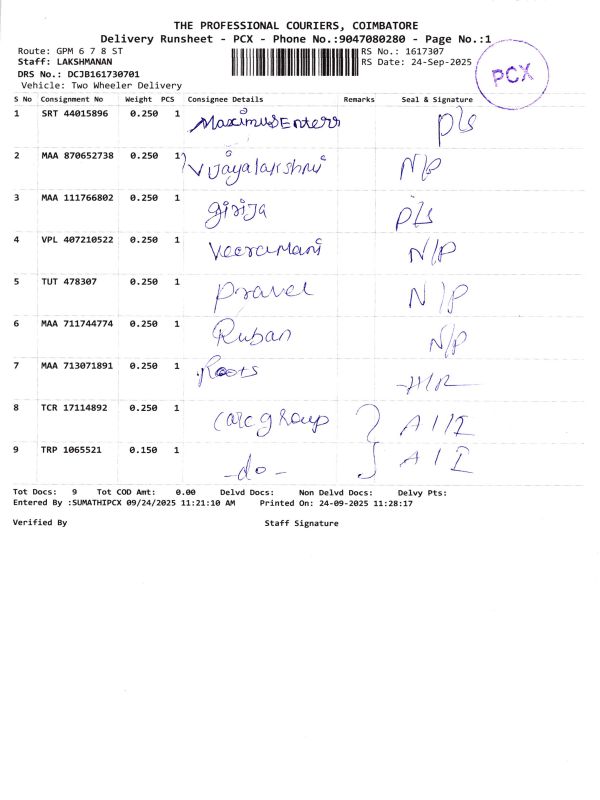 THE PROFESSIONAL COURIERS, COIMBATORE
Delivery Runsheet - PCX - Phone No.:9047080280 - Page No.:1
Route: GPM 6 7 8 ST RS No.: 1617307
Staff: LAKSHMANAN RS Date: 24-Sep-2025
DRS No.: DCJB161730701
Vehicle: Two Wheeler Delivery
PCX
S No Consignment No Weight PCS Consignee Details Remarks Seal & Signature
1 SRT 44015896 0.250 1 Maximus Enterr Pls
2 MAA 870652738 0.250 1 Vijayalakshmi N/P
3 MAA 111766802 0.250 1 girija Pls
4 VPL 407210522 0.250 1 Veeramani N/P
5 TUT 478307 0.250 1 Pravel N/P
6 MAA 711744774 0.250 1 Ruban N/P
7 MAA 713071891 0.250 1 Roots
8 TCR 17114892 0.250 1 group
9 TRP 1065521 0.150 1 -do-
Tot Docs: 9 Tot COD Amt: 0.00 Delvd Docs: Non Delvd Docs: Delvy Pts:
Entered By :SUMATHIPCX 09/24/2025 11:21:10 AM Printed On: 24-09-2025 11:28:17
Verified By Staff Signature